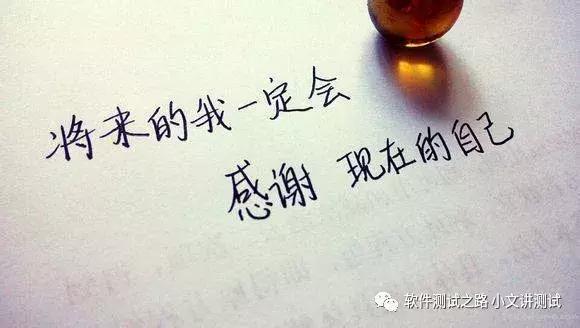 将来的我一定会
感谢 现在的自己
软件测试之路 小文讲测试